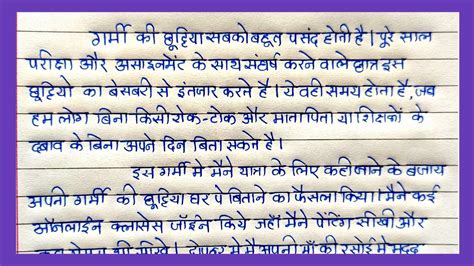 गर्मी की छुट्टिया सबको बहुत पसंद होती है। पूरे साल
परीक्षा और असाइनमेंट के साथ संघर्ष करने वाले छात्र इस
छुट्टियो का बेसबरी से इंतजार करते है। ये वही समय होता है, जब
हम लोग बिना किसी रोक-टोक और माता पिता या शिक्षकों के
दबाव के बिना अपने दिन बिता सकते है।
इस गर्मी मे मैने यात्रा के लिए कही जाने के बजाय
अपनी गर्मी की छुट्टिया घर पे बिताने का फैसला किया। मैने कई
ऑनलाईन क्लासेस जॉइन किये जहाँ मैने पेंटिंग सीखी और
मे मै अपनी माँ की रसोई मे मदद